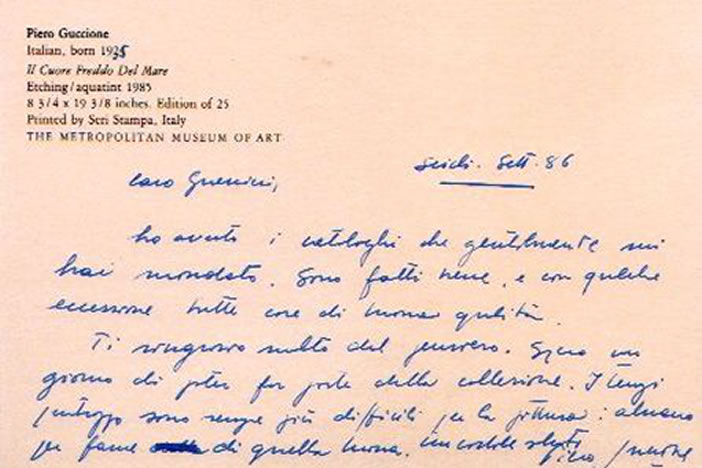 Piero Guccione
Italian, born 1935
Il Cuore Freddo Del Mare
Etching/aquatint 1985
8 3/4 x 19 3/8 inches. Edition of 25
Printed by Seri Stampa, Italy
THE METROPOLITAN MUSEUM OF ART
Scicli. Sett. 86
Caro
ho avuto i cataloghi che gentilmente mi
hai mandato. Sono fatti bene, e con qualche
eccezione tutte cose di buona qualità.
Ti ringrazio molto del pensiero. Spero un
giorno di poter far parte della collezione. I tempi
purtroppo sono sempre più difficili per la pittura: almeno
per farne di quella buona. Un cordiale saluto
Piero Guccione